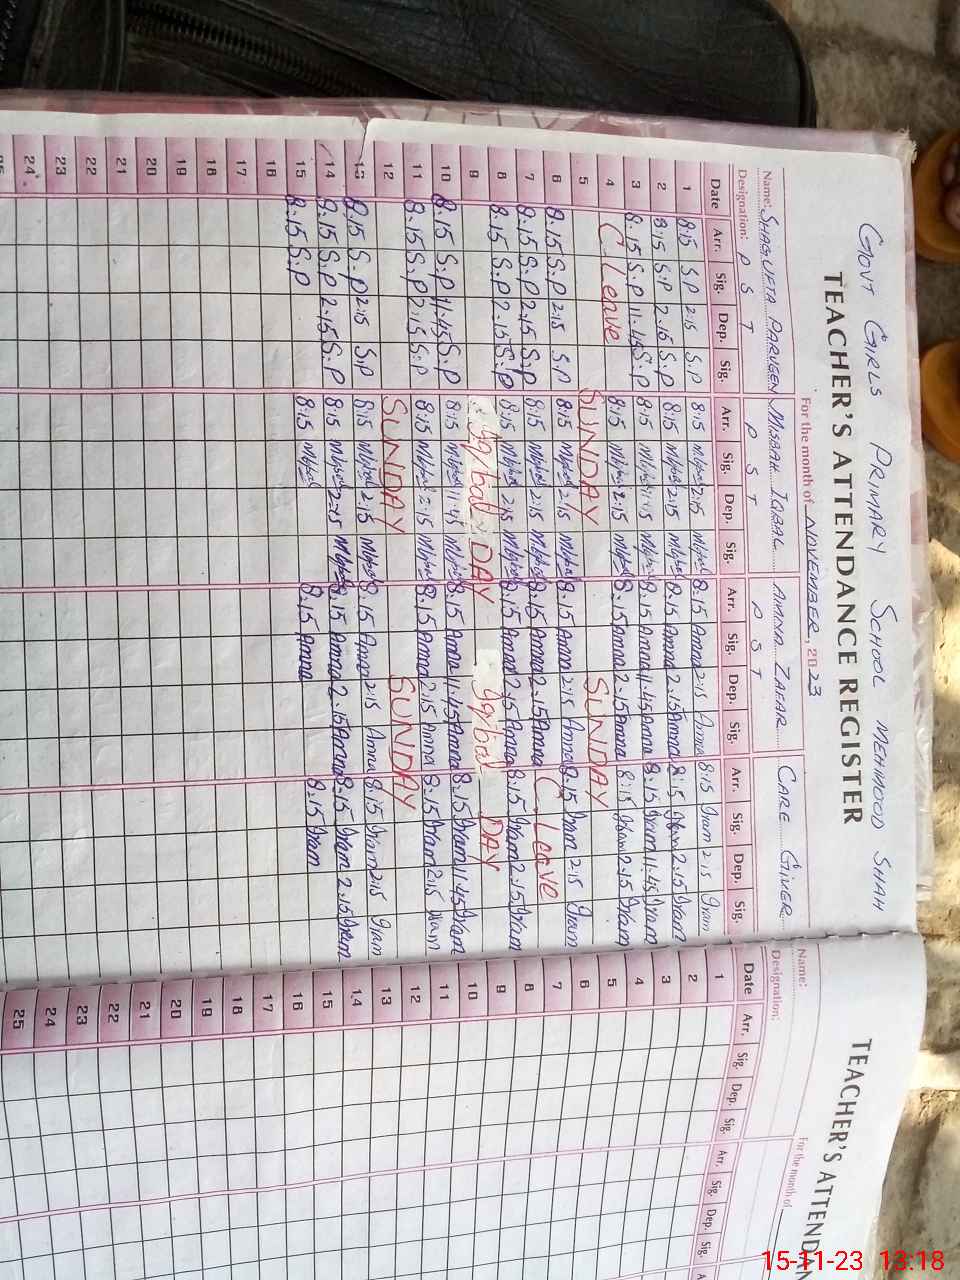 GOVT GIRLS PRIMARY SCHOOL MEHMOOD SHAH
TEACHER'S ATTENDANCE REGISTER
For the month of NOVEMBER, 2023
Name: SHAGUFTA PARVEEN MISBAH IQBAL AMNA ZAFAR CARE GIVER
Designation: P S T P S T P S T
Date Arr. Sig. Dep. Sig. Arr. Sig. Dep. Sig. Arr. Sig. Dep. Sig. Arr. Sig. Dep. Sig.
1 8:15 S.P 2:15 S.P 8:15 2:15 8.15 Amna 2:15 Amna 8:15 Iram 2:15 Iram
2 8:15 S.P 2.15 S.P 8:15 2:15 8.15 Amna 2.15 Amna 8:15 Iram 2.15 Iram
3 8.15 S.P 11.45 S.P 8:15 11:45 8.15 Amna 11.45 Amna 8.15 Iram 11.45 Iram
4 C Leave 8:15 2:15 8.15 Amna 2.15 Amna 8:15 Iram 2.15 Iram
5 SUNDAY SUNDAY
6 8.15 S.P 2:15 S.P 8:15 2:15 8.15 Amna 2:15 Amna 8.15 Iram 2:15 Iram
7 8.15 S.P 2.15 S.P 8:15 2:15 8:15 Amna 2.15 Amna C Leave
8 8.15 S.P 2.15 S.P 8:15 2:15 8.15 Amna 2.15 Amna 8.15 Iram 2.15 Iram
9 Iqbal DAY Iqbal DAY
10 8.15 S.P 11.45 S.P 8:15 11:45 8.15 Amna 11.45 Amna 8.15 Iram 11.45 Iram
11 8.15 S.P 2:15 S.P 8:15 2:15 8.15 Amna 2:15 Amna 8.15 Iram 2:15 Iram
12 SUNDAY SUNDAY
13 8.15 S.P 2:15 S.P 8:15 2:15 8.15 Amna 2:15 Amna 8.15 Iram 2:15 Iram
14 8.15 S.P 2.15 S.P 8:15 2:15 8.15 Amna 2.15 Amna 8.15 Iram 2.15 Iram
15 8.15 S.P 8:15 8.15 Amna 8.15 Iram
16
17
18
19
20
21
22
23
24
TEACHER'S ATTENDAN
For the month of
Name:
Designation:
Date Arr. Sig. Dep. Sig. Arr. Sig. Dep. Sig.
1
2
3
4
5
6
7
8
9
10
11
12
13
14
15
16
17
18
19
20
21
22
23
24
25
15-11-23 13:18